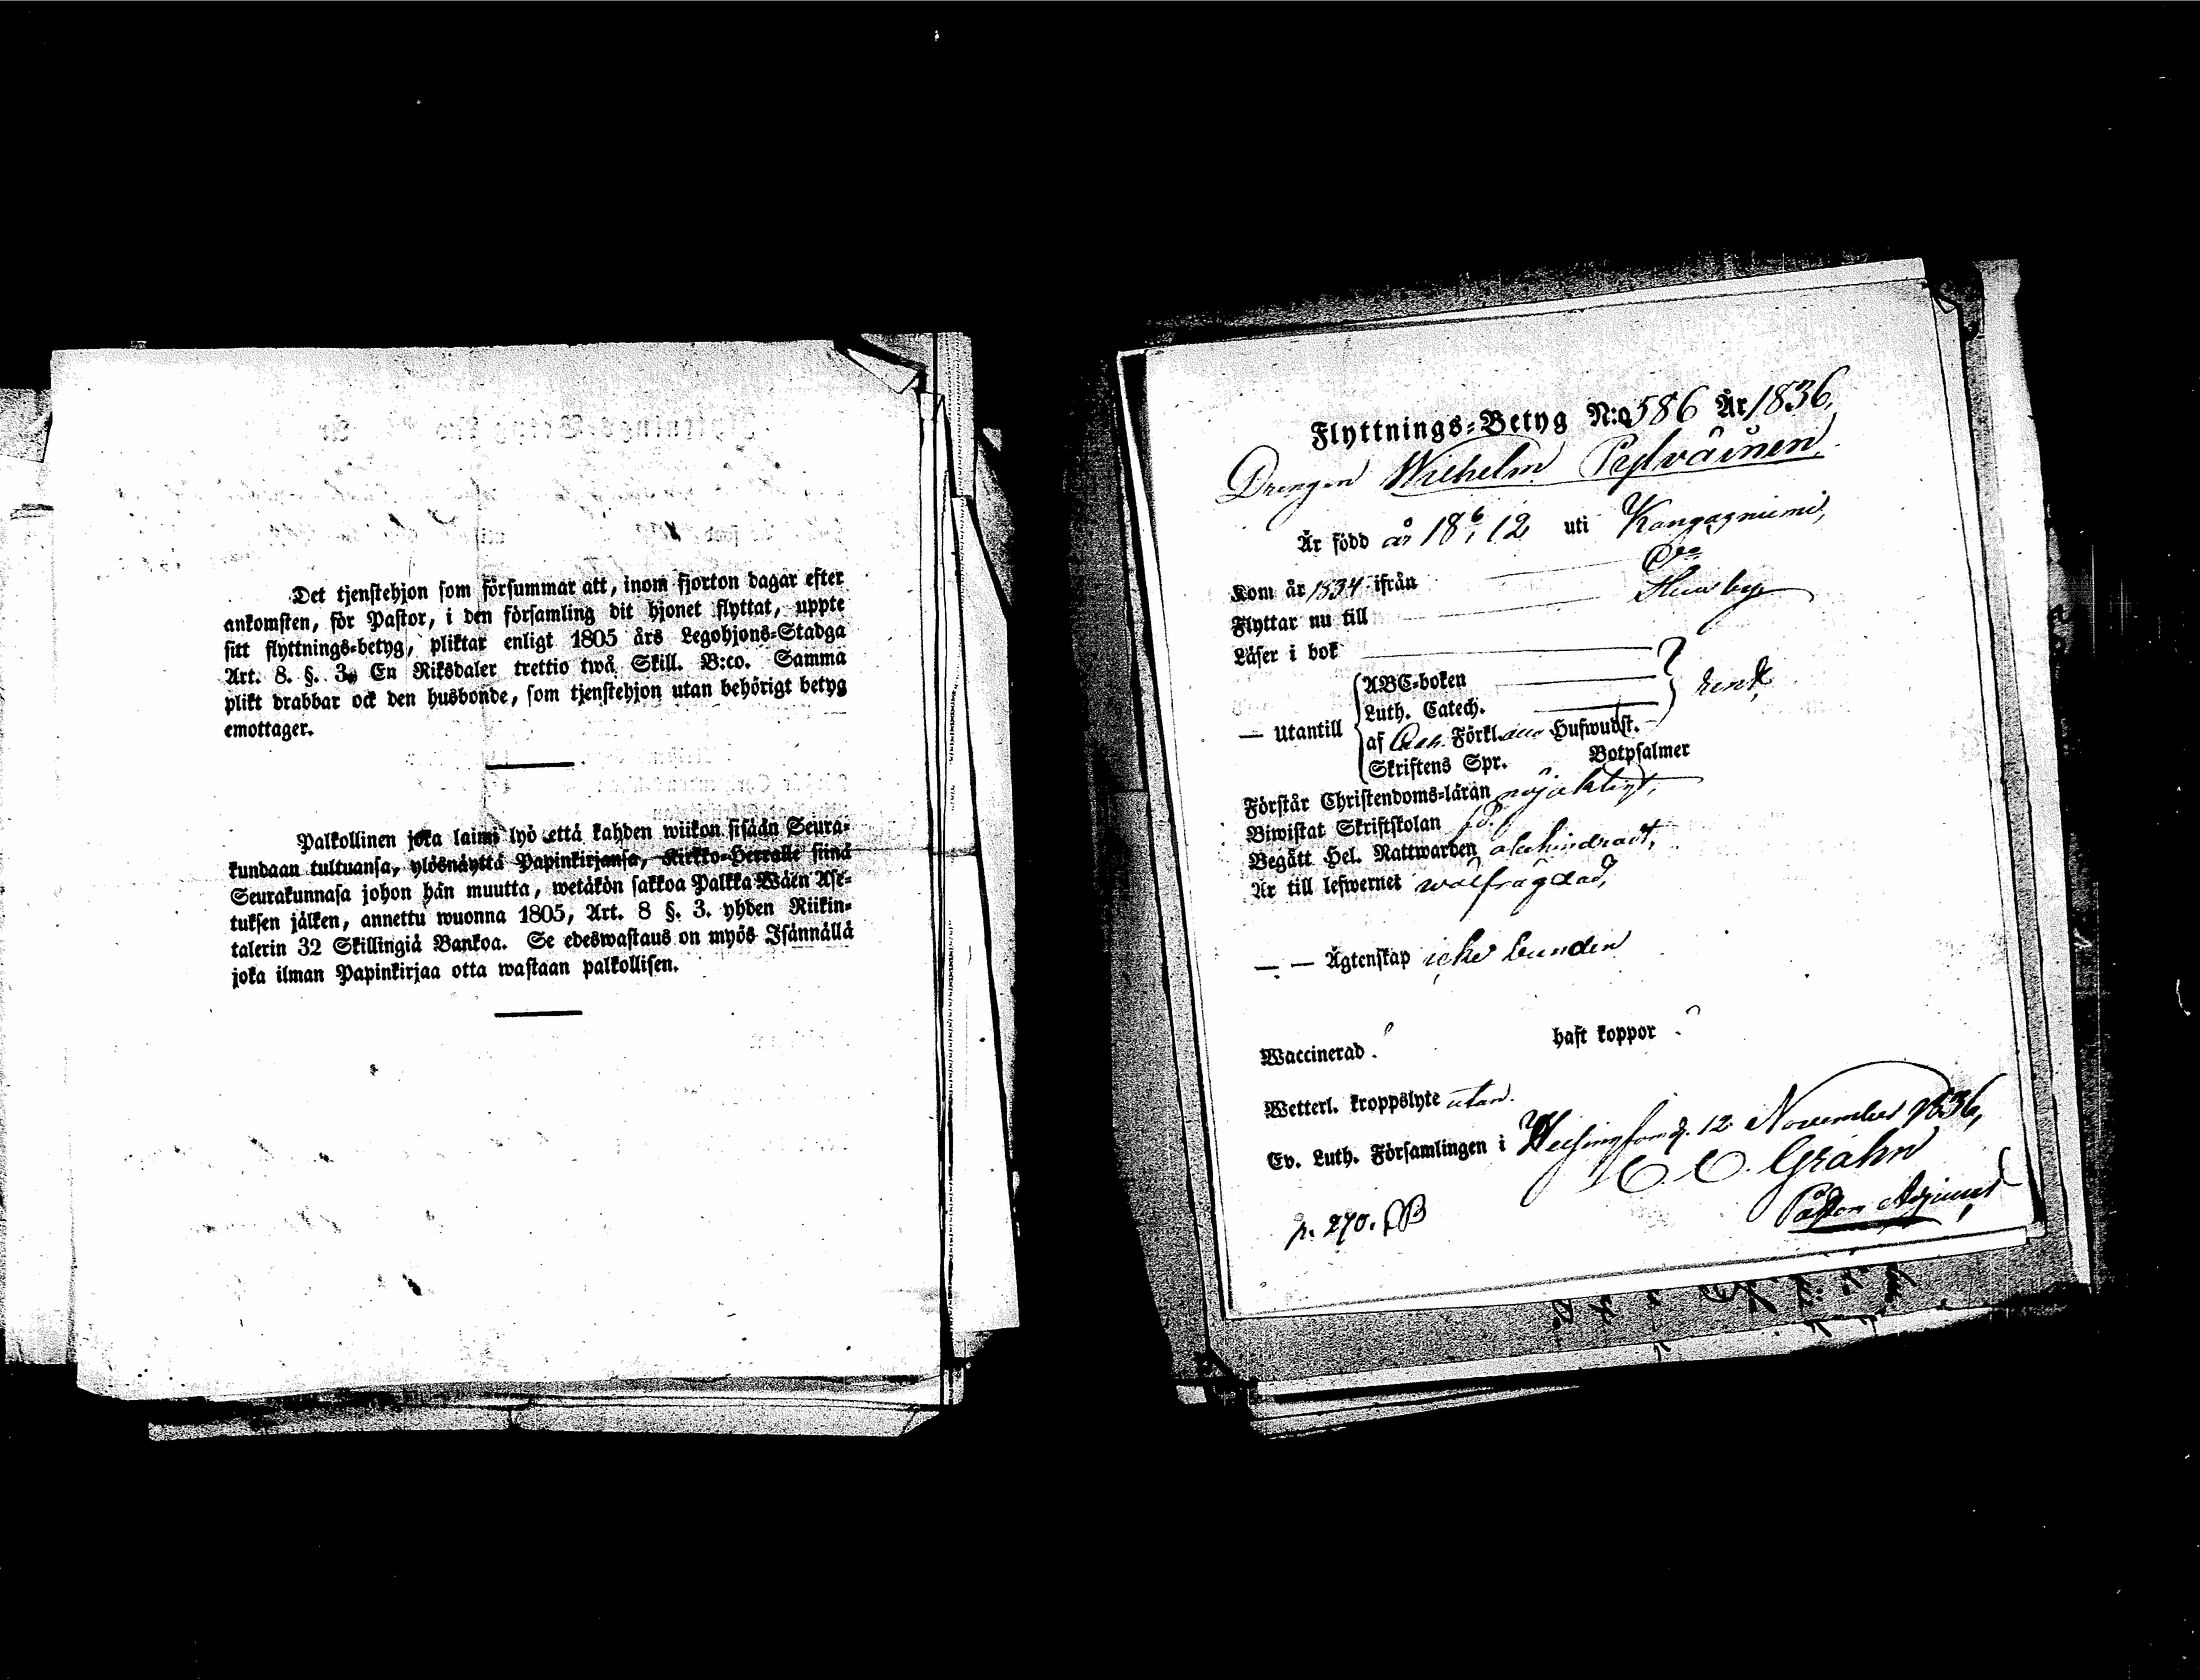 Det tjenstehjon som försummar att, inom fjorton dagar efter
ankomsten, för Pastor, i den församling dit hjonet flyttat, uppte
sitt flyttnings-betyg, pliktar enligt 1805 års Legohjons-Stadga
Art. 8. §. 3. En Riksdaler trettio twå Skill. B:co. Samma
plikt drabbar ock den husbonde, som tjenstehjon utan behörigt betyg
emottager.
Palkollinen joka laimi lyö että kahden wiikon sisään Seura-
kundaan tultuansa, ylösnäyttä Papinkirjansa, Kirkko-Herralle siinä
Seurakunnasa johon hän muutta, wetäkön sakkoa Palkka Wäen Ase-
tuksen jälken, annettu wuonna 1805, Art. 8 §. 3. yhden Riikin-
talerin 32 Skillingiä Bankoa. Se edeswastaus on myös Isännällä
joka ilman Papinkirjaa otta wastaan palkollisen.
Flyttnings-Betyg N:o 586 År 1836,
Drengen Wilhelm
Är född år 18 6/1 12 uti Kangasniemi,
Kom år 1834 ifrån
Flyttar nu till
Läser i bok
— Utantill ABC-boken
Luth. Catech.
af Förkl. Hufwudst.
Skriftens Spr. Botpsalmer
Förstår Christendoms-läran nöjaktigt,
Biwistat Skriftskolan
Begått Hel. Nattwarden obehindradt,
Är till lefwernet wälfrägdad,
— — Ägtenskap icke bunden
Waccinerad ? haft koppor ?
Wetterl. kroppslyte utan.
Ev. Luth. Församlingen i Helsingfors d. 12 November 1836,
Grahn
p. 270.